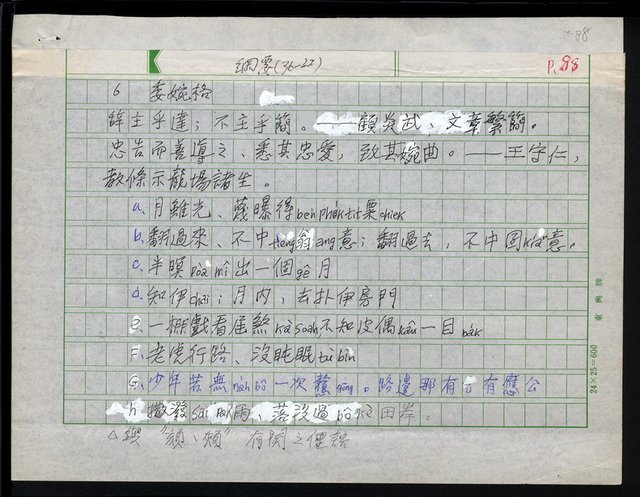 綱要(36-22)
P.88
6 委婉格
辭主乎達；不主乎簡。——顧炎武、文章繁簡。
忠告而善導之、悉其忠愛，致其婉曲。——王守仁，
教條示龍場諸生。
a、月雖光、曝得beh phak tit粟chiek
b、翻過來、不中翁ang意；翻過去，不中囝kiaⁿ意。
c、半暝poàⁿ mî出一個gê月
d、知伊chāi；月內，去扑伊房門
e、一棚戲看屠煞kà soah不知皮偶 一目bak
f、老虎行路、沒盹眠tu bîn
g、少年若無nah bô一次 gōng。路邊那有 有應公
h、撒發 雨、落沒過 田岸。
△與 有關之俚諺
24×25=600